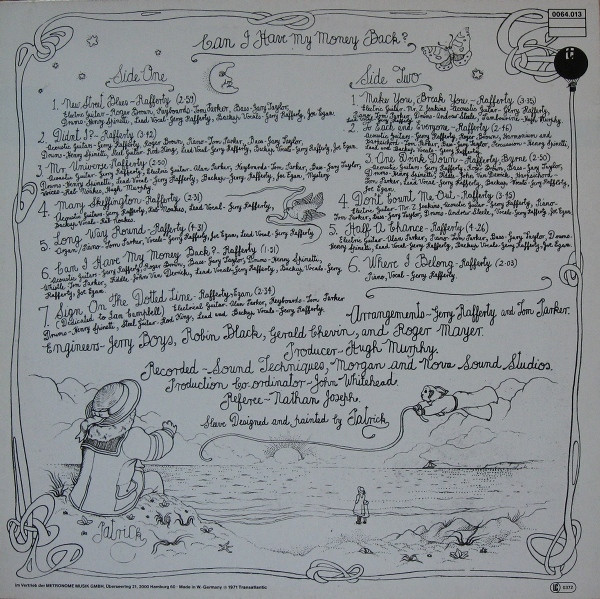 0064.013
Can I Have My Money Back?
Side One
1. New Street Blues ~ Rafferty (2·59)
Electric Guitar - Roger Brown, Keyboards - Tom Parker, Bass - Gary Taylor,
Drums - Henry Spinetti, Lead Vocal - Gerry Rafferty, Backup Vocals - Gerry Rafferty, Joe Egan.
2. Didn't I? ~ Rafferty (3·42)
Acoustic Guitar - Gerry Rafferty, Roger Brown, Piano - Tom Parker, Bass - Gary Taylor,
Drums - Henry Spinetti, Steel Guitar - Rod King, Lead Vocal - Gerry Rafferty, Backup Vocal - Gerry Rafferty, Joe Egan.
3. Mr. Universe ~ Rafferty (2·50)
Acoustic Guitar - Gerry Rafferty, Electric Guitar - Alan Parker, Keyboards - Tom Parker, Bass - Gary Taylor,
Drums - Henry Spinetti, Lead Vocal - Gerry Rafferty, Backup - Gerry Rafferty, Joe Egan, Mystery
Vocals - Hugh Murphy.
4. Mary Skeffington ~ Rafferty (2·31)
Acoustic Guitars - Gerry Rafferty, Rab Noakes, Lead Vocal - Gerry Rafferty,
Backup Vocals - Rab Noakes.
5. Long Way Round ~ Rafferty (4·31)
Organ/Piano - Tom Parker, Vocals - Gerry Rafferty, Joe Egan, Lead Vocal - Gerry Rafferty
6. Can I Have My Money Back? ~ Rafferty (1·51)
Acoustic Guitar - Gerry Rafferty, Roger Brown, Bass - Gary Taylor, Drums - Henry Spinetti,
Whistle Tom Parker, Fiddle - John Van Derrick, Lead Vocals - Gerry Rafferty, Backup Vocals - Gerry
Rafferty, Joe Egan.
7. Sign On The Dotted Line ~ Rafferty/Egan (2·34)
(Dedicated to Ian Campbell) Electric Guitar - Alan Parker, Keyboards - Tom Parker
Drums - Henry Spinetti, Steel Guitar - Rod King, Lead and Backup Vocals - Gerry Rafferty.
Side Two
1. Make You, Break You ~ Rafferty (3·35)
Electric Guitar - Mr. Z Jenkins, Acoustic Guitar - Gerry Rafferty,
Piano - Tom Parker, Bass - Gary Taylor, Drums - Andrew Steele, Tambourine - Hugh Murphy,
2. To Each and Everyone ~ Rafferty (2·49)
Acoustic Guitar - Gerry Rafferty, Roger Brown, Harmonium and
Harpsichord - Tom Parker, Bass - Gary Taylor, Percussion - Henry Spinetti,
Lead Vocal - Gerry Rafferty.
3. One Drink Down ~ Rafferty, Byrne (2·50)
Acoustic Guitars - Gerry Rafferty, Roger Brown, Bass - Gary Taylor,
Drums - Henry Spinetti, Fiddle - John Van Derrick, Harpsichord -
Tom Parker, Lead Vocal - Gerry Rafferty, Backup Vocals - Gerry Rafferty,
Joe Egan.
4. Don't Count Me Out ~ Rafferty (3·45)
Electric Guitar - Mr. Z Jenkins, Acoustic Guitar - Gerry Rafferty, Piano
Tom Parker, Bass - Gary Taylor, Drums - Andrew Steele, Vocals - Gerry Rafferty, Joe Egan
5. Half A Chance ~ Rafferty (4·26)
Electric Guitar - Alan Parker, Piano - Tom Parker, Bass - Gary Taylor, Drums -
Henry Spinetti, Lead Vocal - Gerry Rafferty, Backup Vocals - Gerry Rafferty, Joe Egan.
6. Where I Belong ~ Rafferty (2·03)
Piano, Vocal - Gerry Rafferty.
Arrangements ~ Gerry Rafferty and Tom Parker.
Engineers ~ Jerry Boys, Robin Black, Gerald Chevin, and Roger Mayer.
Producer ~ Hugh Murphy.
Recorded ~ Sound Techniques, Morgan and Nova Sound Studios.
Production Co.ordinator ~ John Whitehead.
Referee ~ Nathan Joseph.
Sleeve Designed and painted by Patrick
Patrick
Im Vertrieb der METRONOME MUSIK GMBH, Überseering 21, 2000 Hamburg 60 · Made in W.-Germany ℗ 1971 Transatlantic